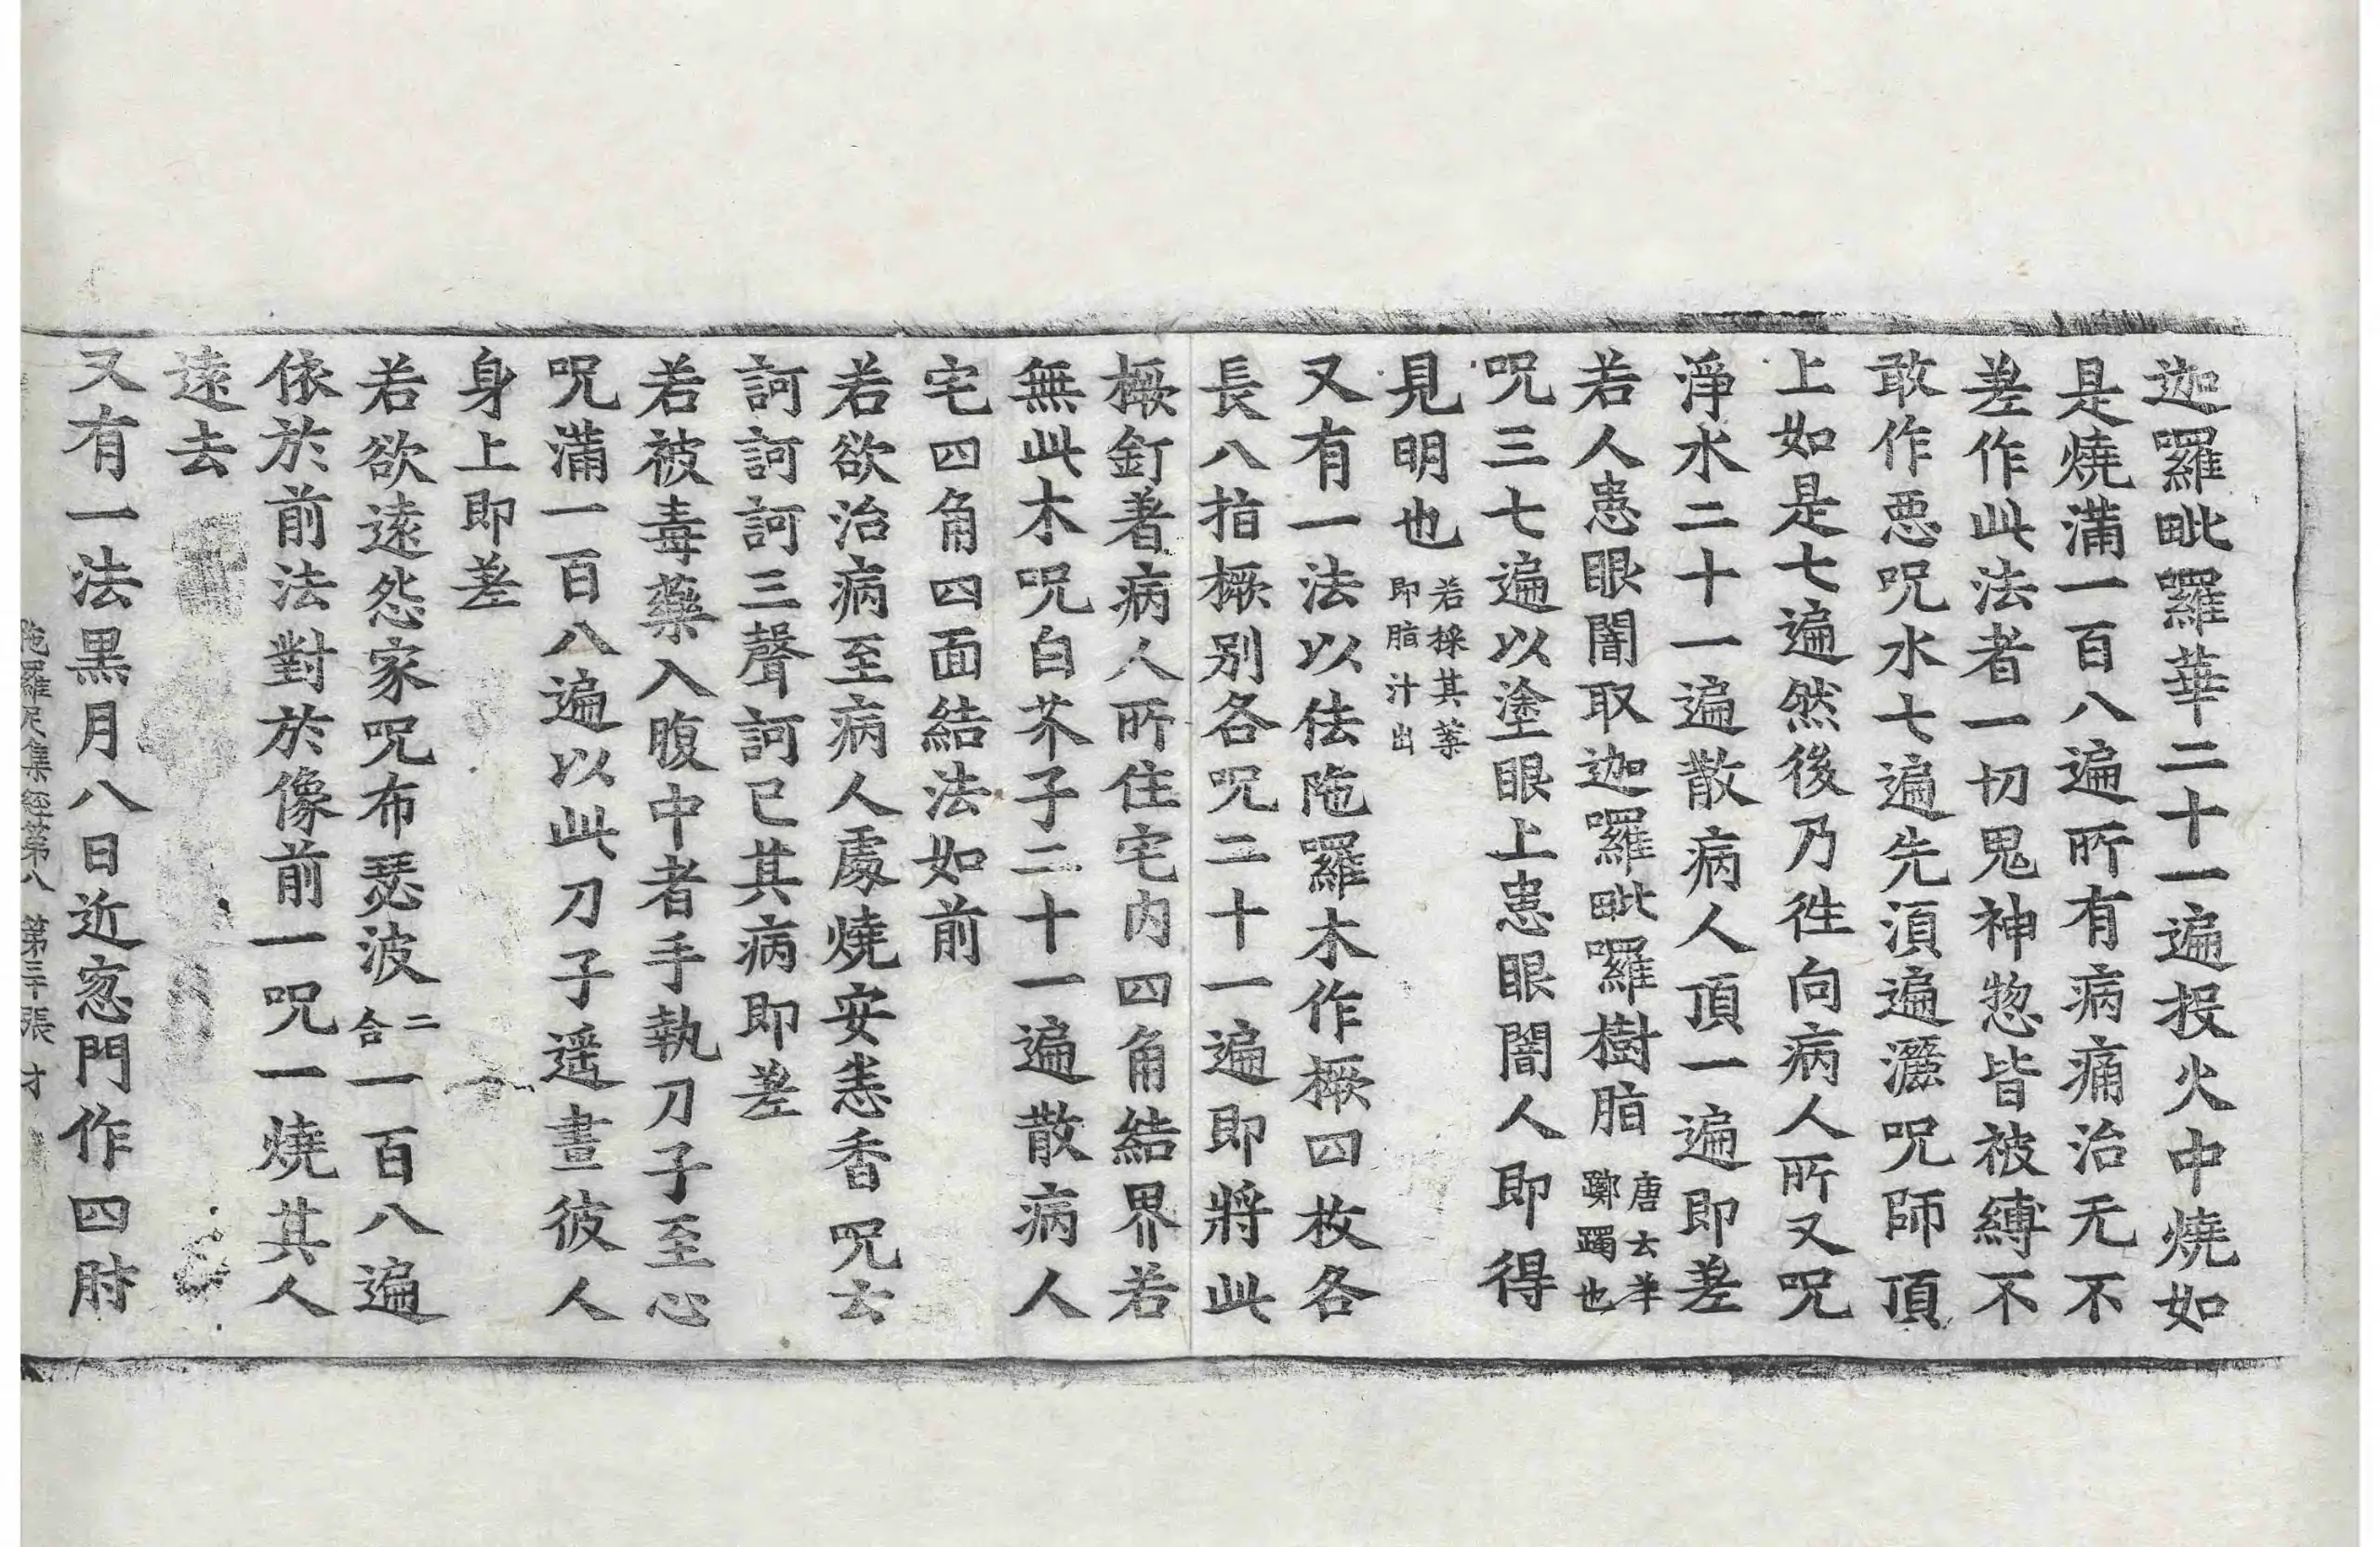 迦囉毗囉華二十一遍投火中燒如
是燒滿一百八遍所有病痛治无不
差作此法者一切鬼神惣皆被縛不
敢作惡呪水七遍先湏遍灑呪師頂
上如是七遍然後乃徃向病人所又呪
淨水二十一遍散病人頂一遍即差
若人患眼闇取迦囉毗囉樹脂唐云羊躑躅也
呪三七遍以塗眼上患眼闇人即得
見明也若採其葉即脂汁出
又有一法以佉陁羅木作橛四枚各
長八指橛別各呪二十一遍即將此
橛釘著病人所住宅内四角結界若
無此木呪白芥子二十一遍散病人
宅四角四面結法如前
若欲治病至病人處燒安悉香呪云
訶訶訶三聲訶已其病即差
若被毒藥入腹中者手執刀子至心
呪滿一百八遍以此刀子遥畫彼人
身上即差
若欲遠怨家呪布瑟波二合一百八遍
依於前法對於像前一呪一燒其人
遠去
又有一法黒月八日近窓門作四肘
陁羅尼集經第八 第三十張 才